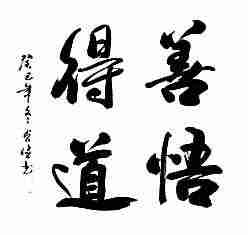 善悟
得道
癸巳年冬